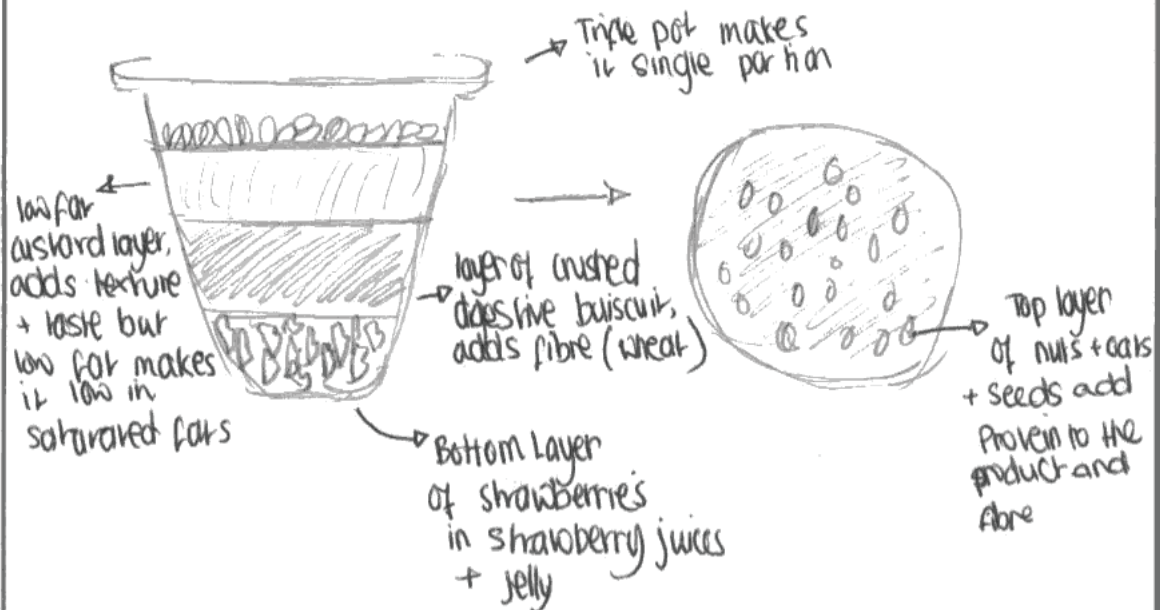 Trifle pot makes
it single portion
low fat
custard layer,
adds texture
+ taste but
low fat makes
it low in
saturated fats
layer of crushed
digestive buiscuit,
adds fibre (wheat)
Bottom Layer
of strawberries
in strawberry juices
+ jelly
Top layer
of nuts + oats
+ seeds add
Protein to the
product and
fibre